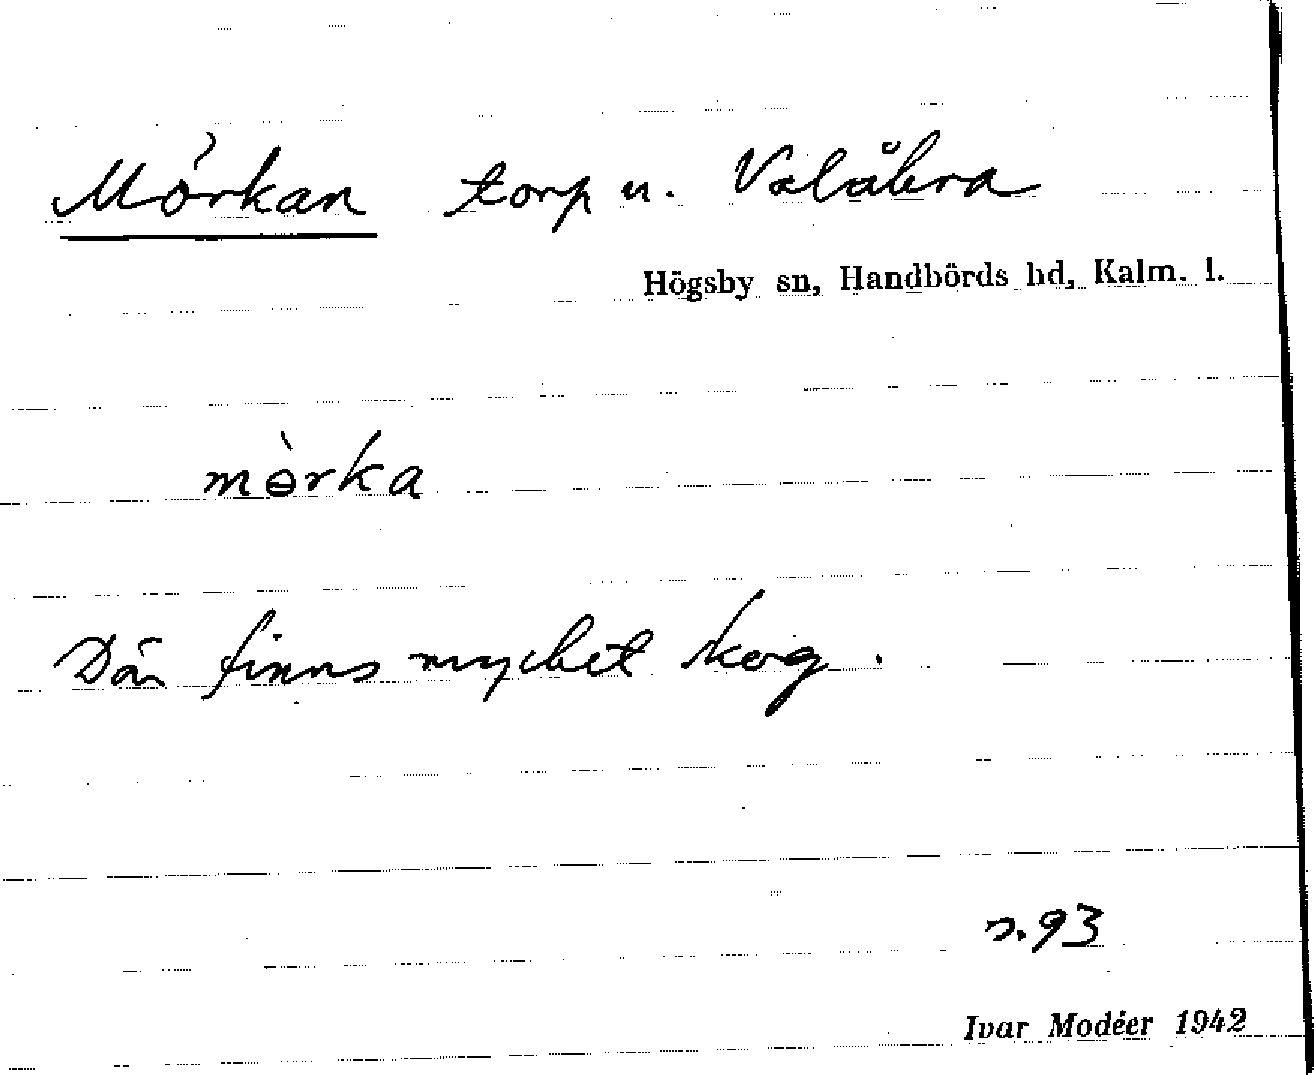 Mörkan torp u. Valåbra
Högsby sn, Handbörds hd, Kalm. l.
mɵ̀rka
Där finns mycket skog.
s. 93
Ivar Modéer 1942